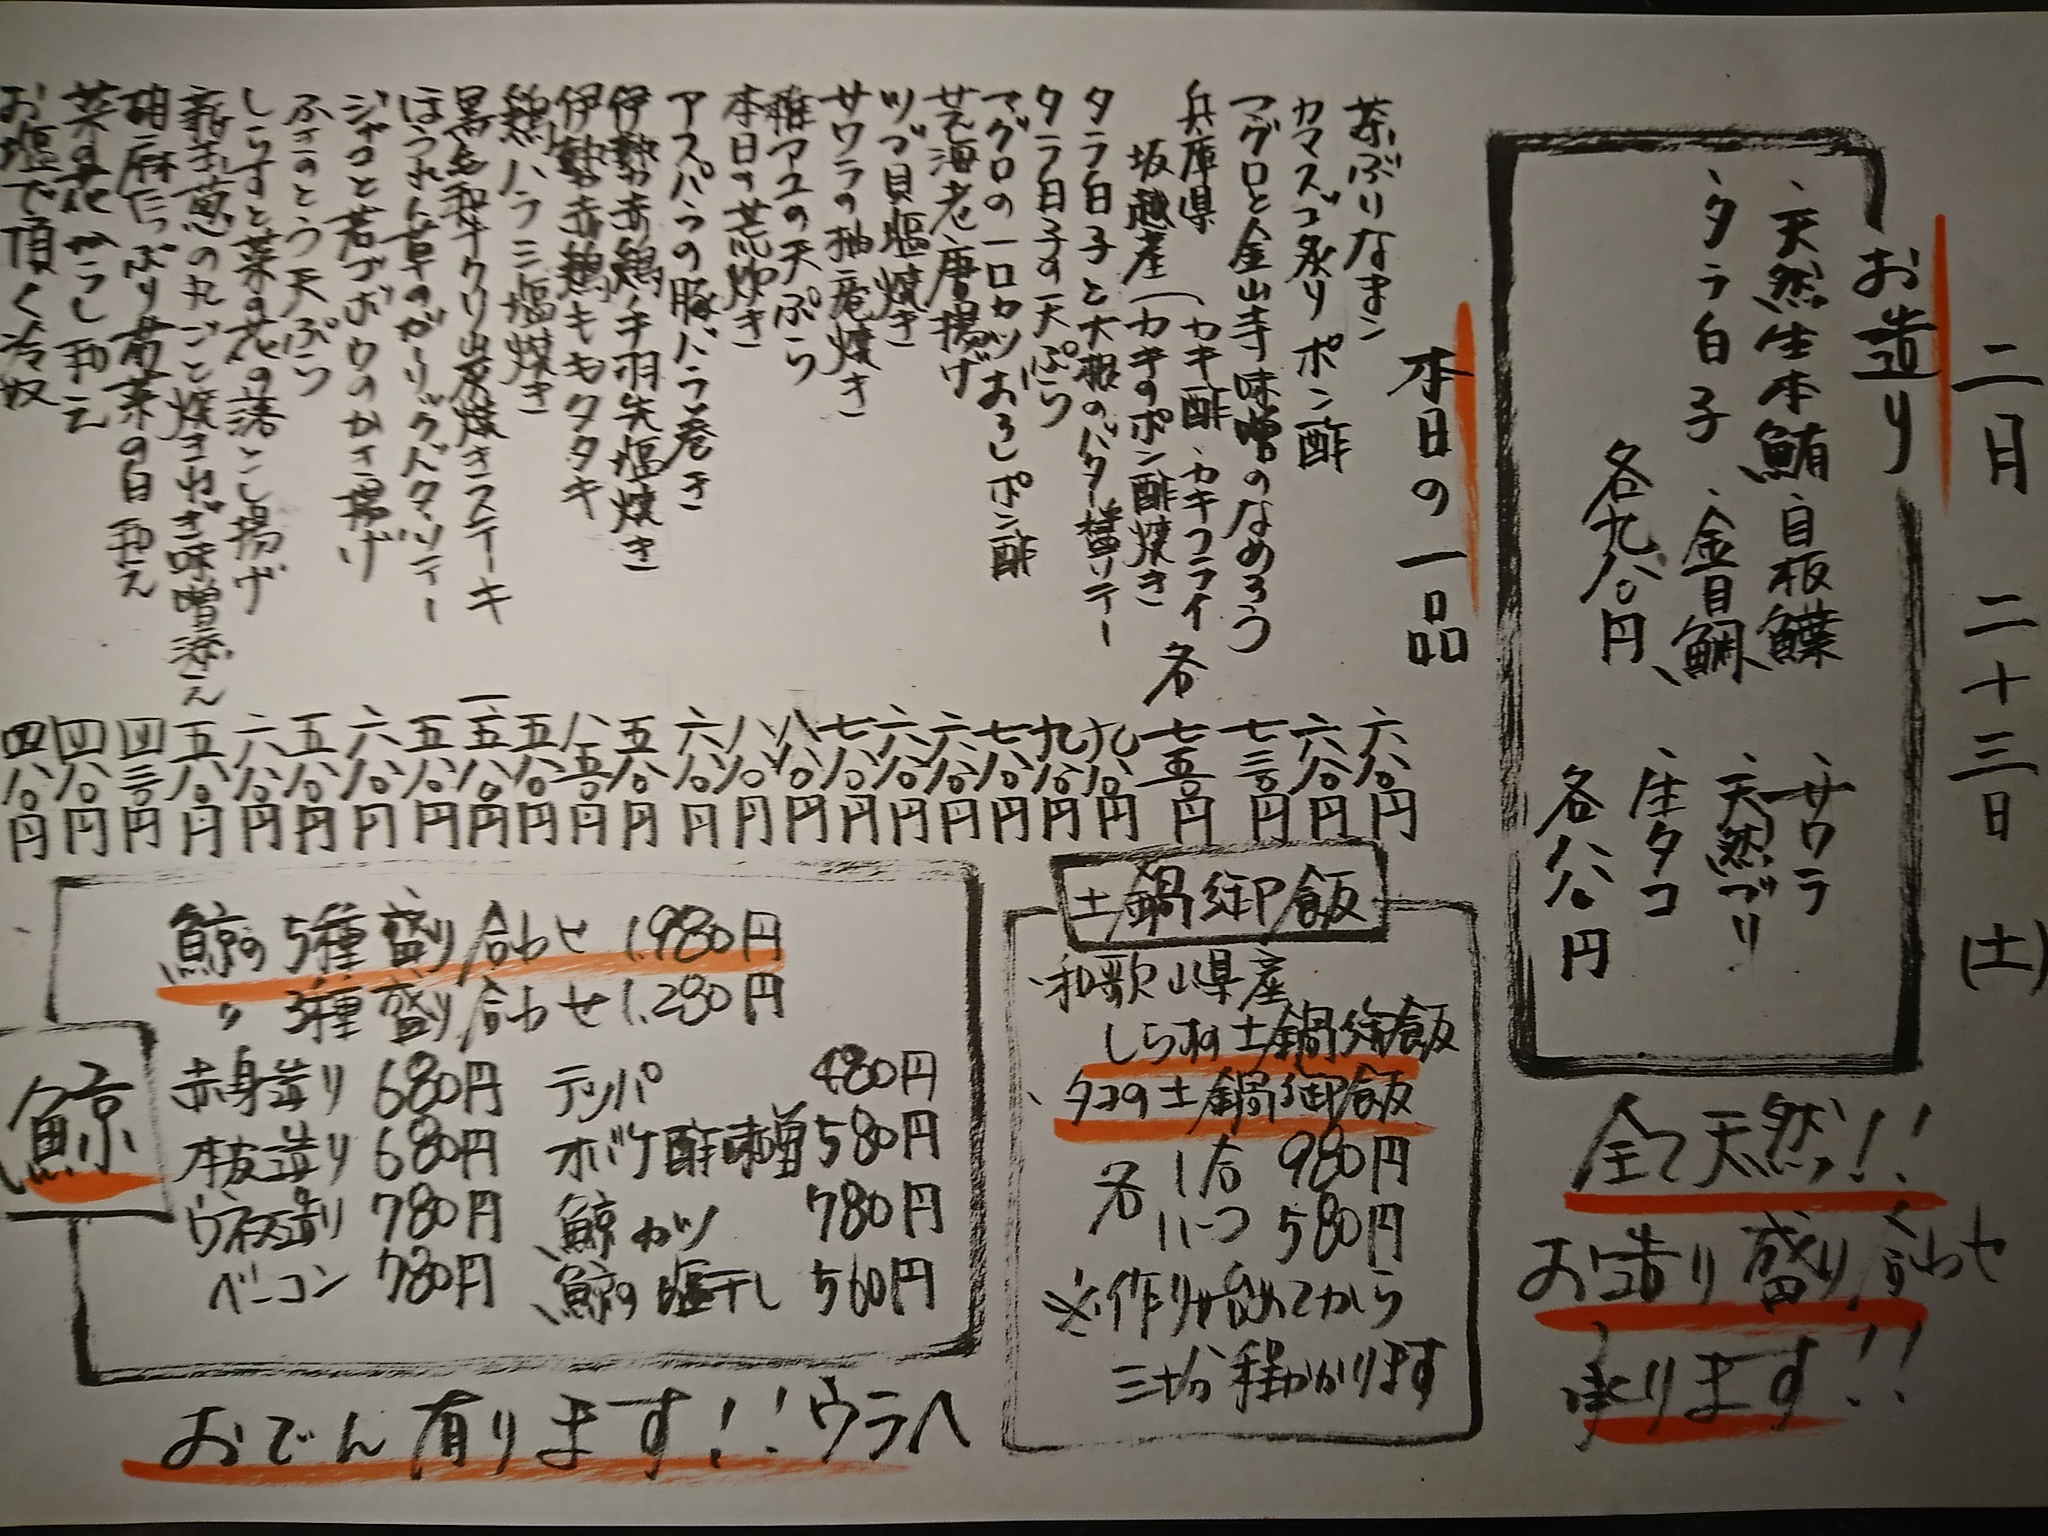 二月 二十三日 (土)
お造り
、天然生本鮪 、目板鰈 、サワラ
、タラ白子 、金目鯛 、天然ブリ
各九八〇円
、生タコ
各八八〇円
全て天然!!
お造り盛り合わせ
承ります!!
本日の一品
茶ぶりなまこ 六八〇円
カマスゴ炙りポン酢 六八〇円
マグロと金山寺味噌のなめろう 七三〇円
兵庫県
坂越産(カキ酢、カキフライ
カキのポン酢焼き 各 七五〇円
タラ白子と大根のバター醤油ソテー 九八〇円
タラ白子の天ぷら 九八〇円
マグロの一口カツおろしポン酢 七八〇円
芝海老唐揚げ 六八〇円
ツブ貝塩焼き 六八〇円
サワラの柚庵焼き 七八〇円
稚アユの天ぷら 八八〇円
本日の荒炊き 八八〇円
アスパラの豚バラ巻き 六八〇円
伊勢赤鶏手羽先塩焼き 五八〇円
伊勢赤鶏モモタタキ 八五〇円
鶏ハラミ塩焼き 五八〇円
黒毛和牛クリ炭焼きステーキ 一、五八〇円
ほうれん草のガーリックバターソテー 五八〇円
ジャコと若ゴボウのかき揚げ 六八〇円
ふきのとう天ぷら 五八〇円
しらすと菜の花の落とし揚げ 六八〇円
新玉葱の丸ごと焼きねぎ味噌添え 五八〇円
胡麻たっぷり菊菜の白和え 四三〇円
菜の花からし和え 四八〇円
お塩で頂く冷奴 四八〇円
土鍋御飯
、和歌山県産
しらすの土鍋御飯
、タコの土鍋御飯
各 1合 980円
ハーフ 580円
※作り始めてから
三十分程かかります
鯨
鯨の5種盛り合わせ 1,980円
〃 3種盛り合わせ 1,280円
赤身造り 680円 テッパ 480円
本皮造り 680円 オバケ酢味噌 580円
ウネス造り 780円 鯨カツ 780円
ベーコン 780円 鯨の塩干し 560円
おでん有ります!!ウラへ